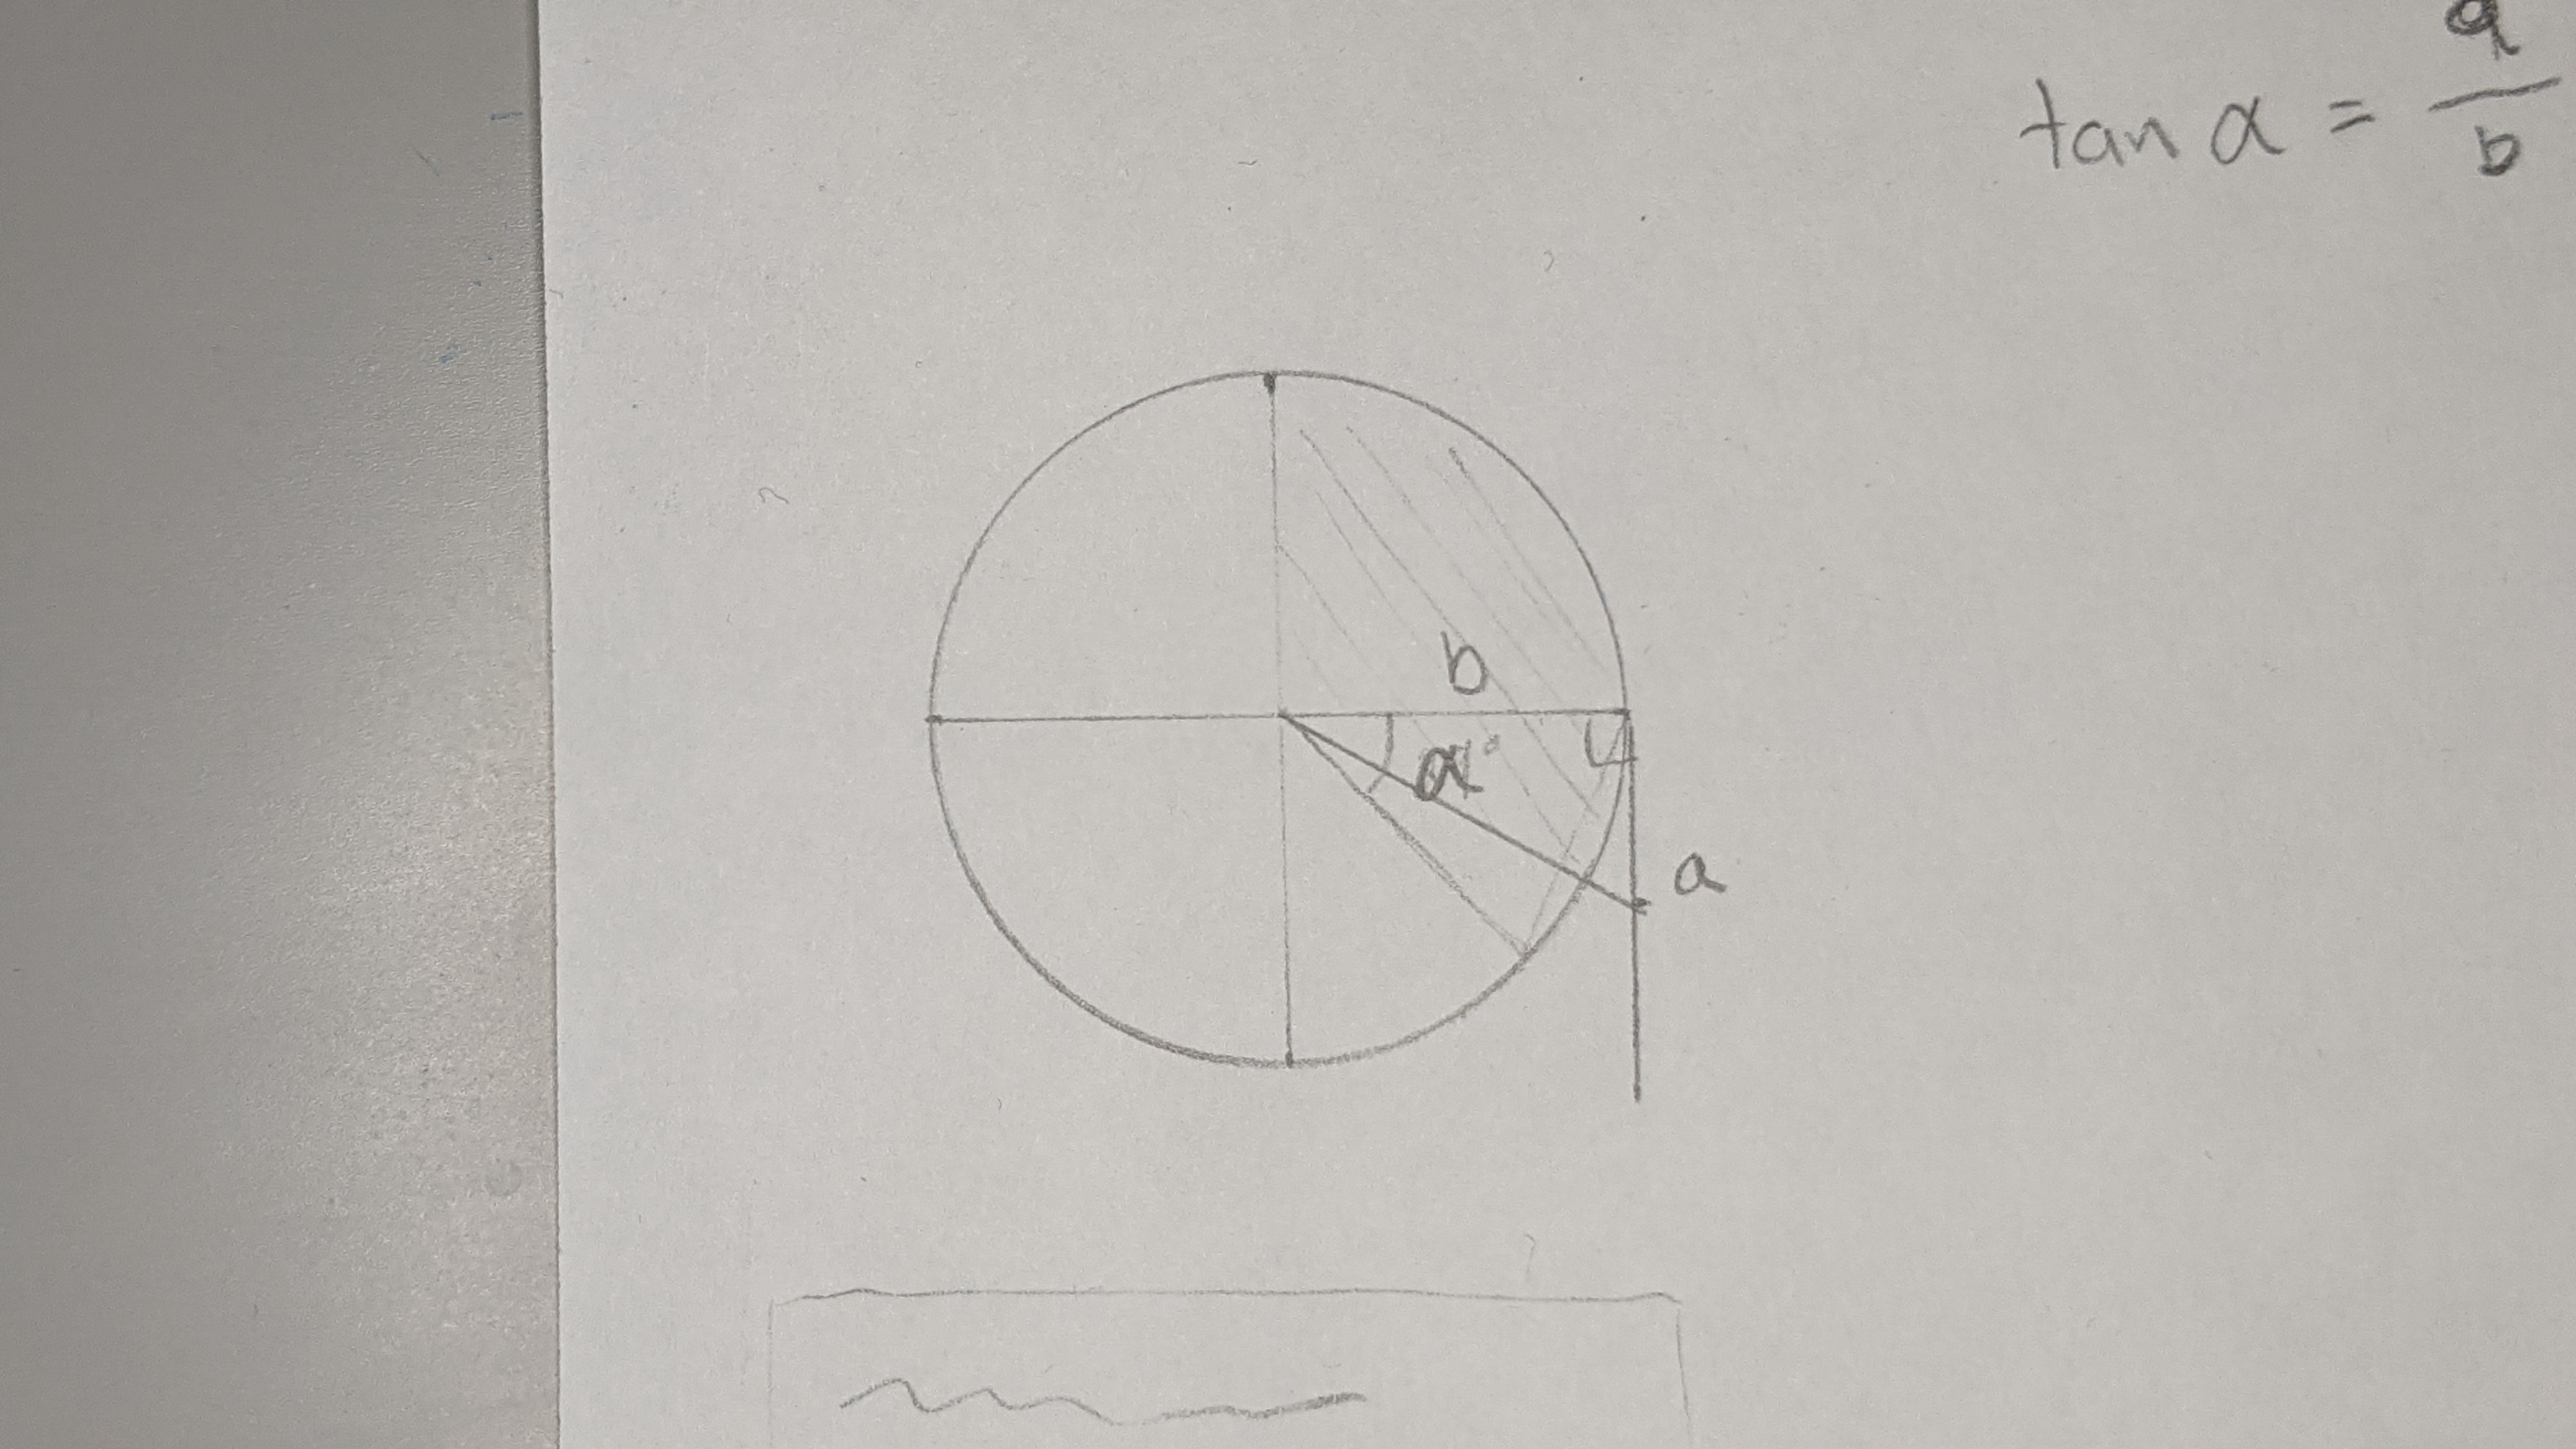 tan α = a/b
b
α°
a